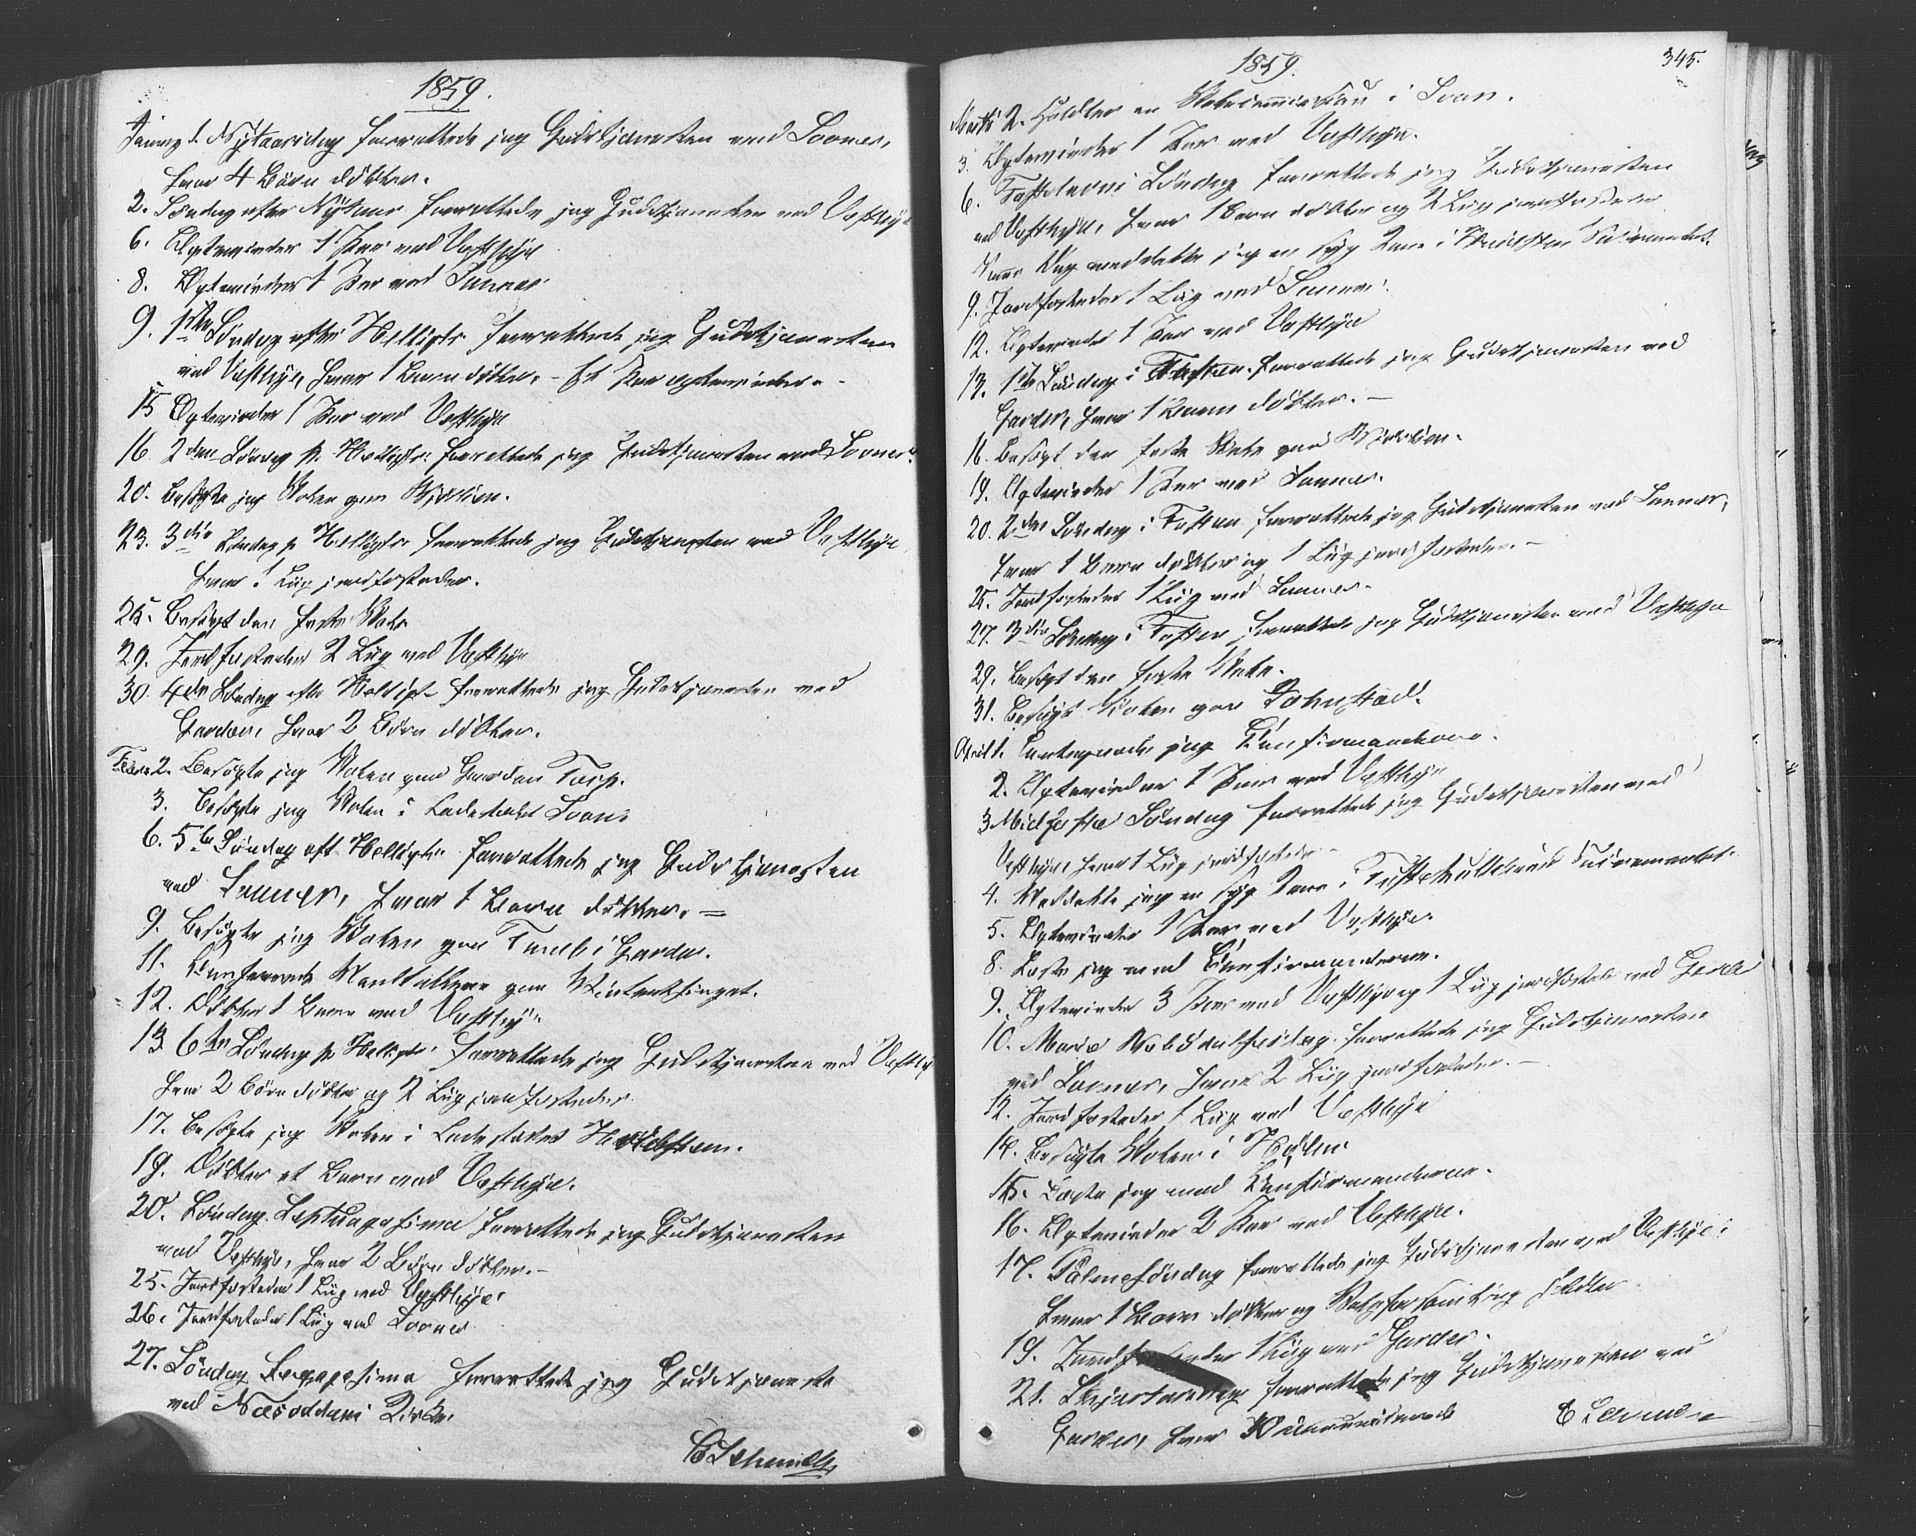 1859.
Januar 1. Nytaarsdag forrettede jeg Gudstjenesten ved Sooner,
hvor 4 Börn döbtes.
2. Söndag efter Nytaar forrettede jeg Gudstjenesten ved Vestbye
6. Ægtevieder 1 Par ved Vestbye
8. Ægtevieder 1 Par ved Sooner
9. 1ste Söndag efter Helligtr forrettede jeg Gudstjenesten
ved Vestbye, hvor 1 Barn döbtes, – Et Par ægtevieder. –
15 Ægtevieder 1 Par ved Vestbye
16 2den Söndag p. Helligtr. forrettede jeg Gudstjenesten ved Sooner.
20. Besögte jeg Skolen paa
23. 3die Söndag p Helligtr forrettede jeg Gudstjenesten ved Vestbye
hvor 1 Liig jordfæstedes.
25. Besögt den faste Skole
29. Jordfæstedes 2 Liig ved Vestbye
30. 4de Söndag efter Helligtr forrettede jeg Gudstjenesten ved
Garder, hvor 2 Börn döbtes.
Febr 2. Besögte jeg Skolen paa Gaarden Torp.
3. Besögte jeg Skolen i Ladestedet Soon
6. 5te Söndag eft Helligtr. forrettede jeg Gudstjenesten
ved Sooner, hvor 1 Barn döbtes. –
9. Besögte jeg Skolen paa i Garder.
11. paa Vintertinget.
12. Döbtes 1 Barn ved Vestbye
13 6te Söndag p Helligtr. forrettede jeg Gudstjenesten ved Vestby
hvor 2 Börn döbtes og 2 Liig jordfæstedes
17. Besögte jeg Skolen i Ladestedet Hvidsten.
19. Döbtes et Barn ved Vestbye.
20. Söndag Septuagesima forrettede jeg Gudstjenesten
ved Vestbye, hvor 2 Börn döbtes. –
25. Jordfæstedes 1 Liig ved Vestbye
26. Jordfæstedes 1 Liig ved Sooner
27. Söndag Sexagesima forrettede jeg Gudstjeneste
ved Næsoddens Kirke.
C Schmidt
345.
1859.
Marts 2. Holdtes en i Soon.
3. Ægtevieder 1 Par ved Vestbye.
6. Fastelavns Söndag forrettede jeg Gudstjenesten
ved Vestbye, hvor 1 Barn döbtes og 2 Liig jordfæstedes
Samme Dag meddelte jeg en syg Kone i Hvidsten Sacramentet.
9. Jordfæstedes 1 Liig ved Sooner.
12. Ægtevieder 1 Par ved Vestbye
13. 1ste Söndag i Fasten forrettede jeg Gudstjenesten ved
Garder, hvor 1 Barn döbtes. –
16. Besögt den faste Skole paa
19. Ægtevieder 1 Par ved Sooner.
20. 2den Söndag i Fasten forrettede jeg Gudstjenesten ved Sooner,
hvor 1 Barn döbtes og 1 Liig jordfæstedes. –
25. Jordfæstedes 1 Liig ved Sooner.
27. 3die Söndag i Fasten forrettede jeg Gudstjenesten ved Vestbye
29. Besögt den faste Skole.
31. Besögt Skolen paa
April 1. jeg Confirmanderne.
2. Ægtevieder 1 Par ved Vestbye
3 Midfaste Söndag forrettede jeg Gudstjenesten ved
Vestbye, hvor 1 Liig jordfæstedes –
4. Meddelte jeg en syg Kone i Sacramentet.
5. Ægtevieder 1 Par ved Vestbye.
8. Læste jeg med Confirmanderne.
9. Ægtevieder 3 Par ved Vestbye og 1 Liig jordfæstedes ved
10. Mariæ Bebudelsesdag forrettede jeg Gudstjenesten
ved Sooner, hvor 2 Liig jordfæstedes. –
12. Jordfæstedes 1 Liig ved Vestbye
14. Besögte Skolen i
15. Læste jeg med Confirmanderne.
16. Ægtevieder 2 Par ved Vestbye.
17. Palmesöndag forrettede jeg Gudstjenesten ved Vestbye
hvor 1 Barn döbtes og
19. Jordfæstedes 1 Liig ved Garder.
21. Skjærtorsdag forrettede jeg Gudstjenesten ved
Garder, hvor
C Schmidt